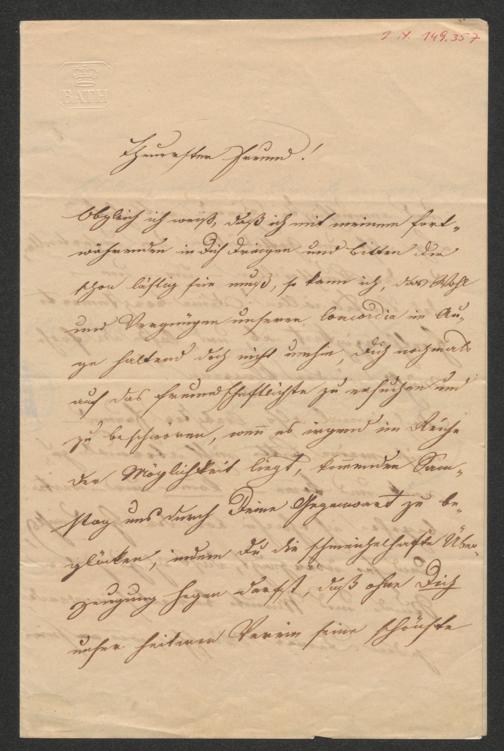 I. N. 149.357
BATH
Theuerster Freund!
Obgleich ich weiß, daß ich mit meinem fort-
währenden in Dich Dringen und Bitten Dir
schon lästig sein muß, so kann ich, das Wohl
und Vergnügen unserer Concordia im Au-
ge haltend doch nicht umhin, Dich nochmals
auf das freundschaftlichste zu ersuchen und
zu beschwören, wenn es irgend im Reiche
der Möglichkeit liegt, kommenden Sam-
stag uns durch Deine Gegenwart zu be-
glücken, indem Du die schmeichelhafte Über-
zeugung hegen darfst, daß ohne Dich
unser heiterer Verein seine schönste